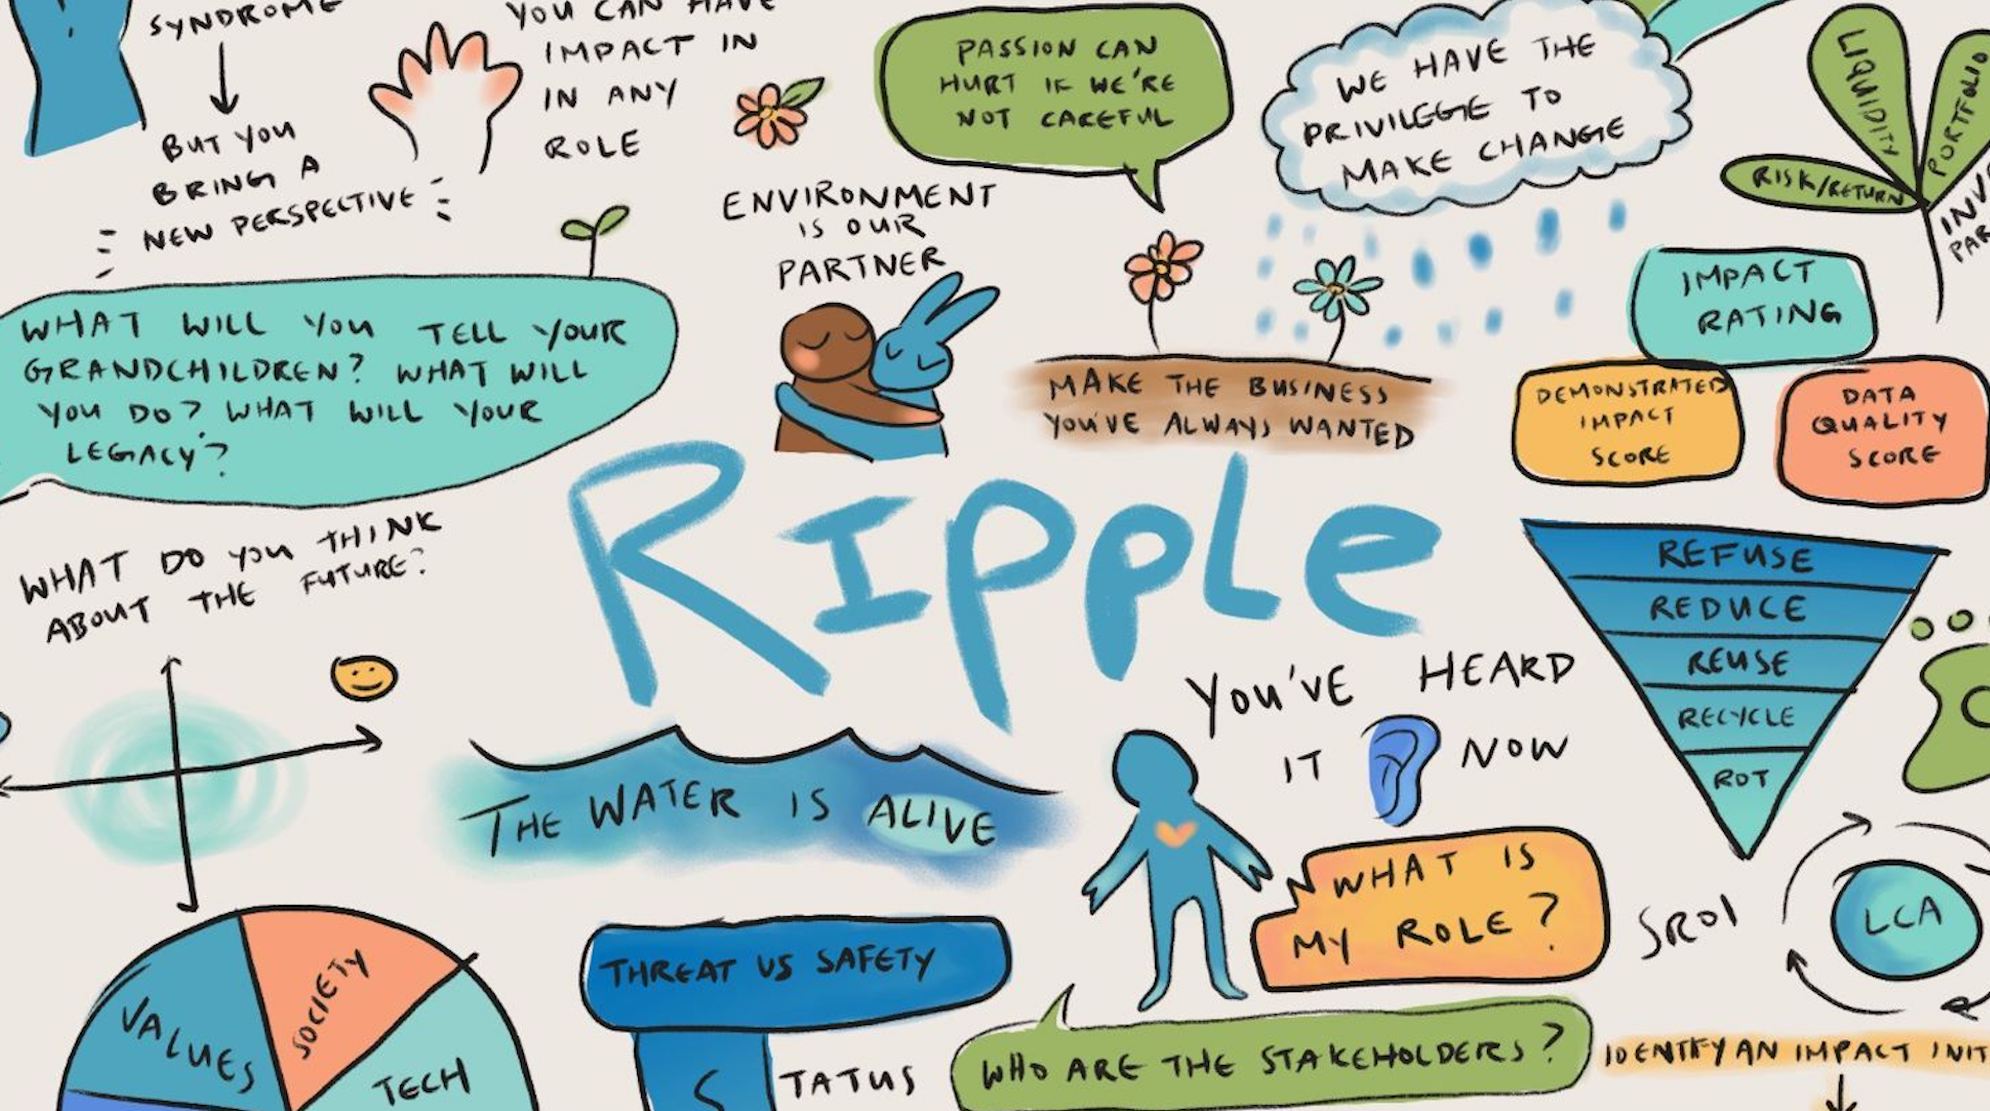 SYNDROME
BUT YOU
BRING A
NEW PERSPECTIVE
YOU CAN HAVE
IMPACT IN
IN ANY
ROLE
PASSION CAN
HURT IF WE'RE
NOT CAREFUL
WE HAVE THE
PRIVILEGE TO
MAKE CHANGE
LIQUIDITY
PORTFOLIO
RISK/RETURN
ENVIRONMENT
IS OUR
PARTNER
WHAT WILL YOU TELL YOUR
GRANDCHILDREN? WHAT WILL
YOU DO? WHAT WILL YOUR
LEGACY?
MAKE THE BUSINESS
YOU'VE ALWAYS WANTED
IMPACT
RATING
DEMONSTRATED
IMPACT
SCORE
DATA
QUALITY
SCORE
Ripple
WHAT DO YOU THINK
ABOUT THE FUTURE?
REFUSE
REDUCE
REUSE
RECYCLE
ROT
YOU'VE HEARD
IT NOW
THE WATER IS ALIVE
WHAT IS
MY ROLE?
SROI
LCA
THREAT VS SAFETY
STATUS
WHO ARE THE STAKEHOLDERS?
IDENTIFY AN IMPACT INIT
VALUES
SOCIETY
TECH